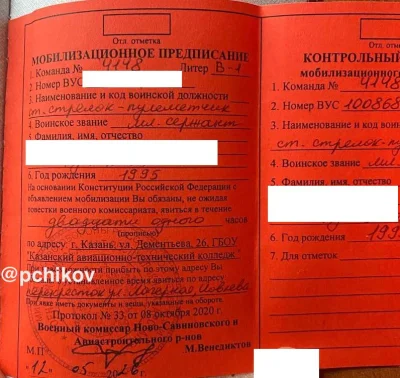 Отл. отметка
МОБИЛИЗАЦИОННОЕ ПРЕДПИСАНИЕ
1. Команда № 4148 Литер В-1
2. Номер ВУС
3. Наименование и код воинской должности
ст. стрелок-пулеметчик
4. Воинское звание мл. сержант
5. Фамилия, имя, отчество
6. Год рождения 1995
На основании Конституции Российской Федерации с
объявлением мобилизации Вы обязаны, не ожидая
повестки военного комиссариата, явиться в течение:
двадцати одного часов
(прописью)
по адресу г. Казань, ул. Дементьева, 26, ГБОУ
"Казанский авиационно-технический колледж"
прибыть по этому адресу Вы
время явиться по адресу
перекресток ул.
При явке иметь документы и вещи, указанные на обороте.
Протокол № 33 от 08 октября 2020 г.
Военный комиссар Ново-Савиновского и
Авиастроительного р-нов
М.П. М.Венедиктов
"12" 05
@pchikov
Отл. отм
КОНТРОЛЬНЫЙ
мобилизационног
1. Команда № 4148
2. Номер ВУС 100868
3. Наименование и код воин
ст. стрелок-пул
4. Воинское звание мл.
5. Фамилия, имя, отчество
6. Год рождения 199
7. Для отметок